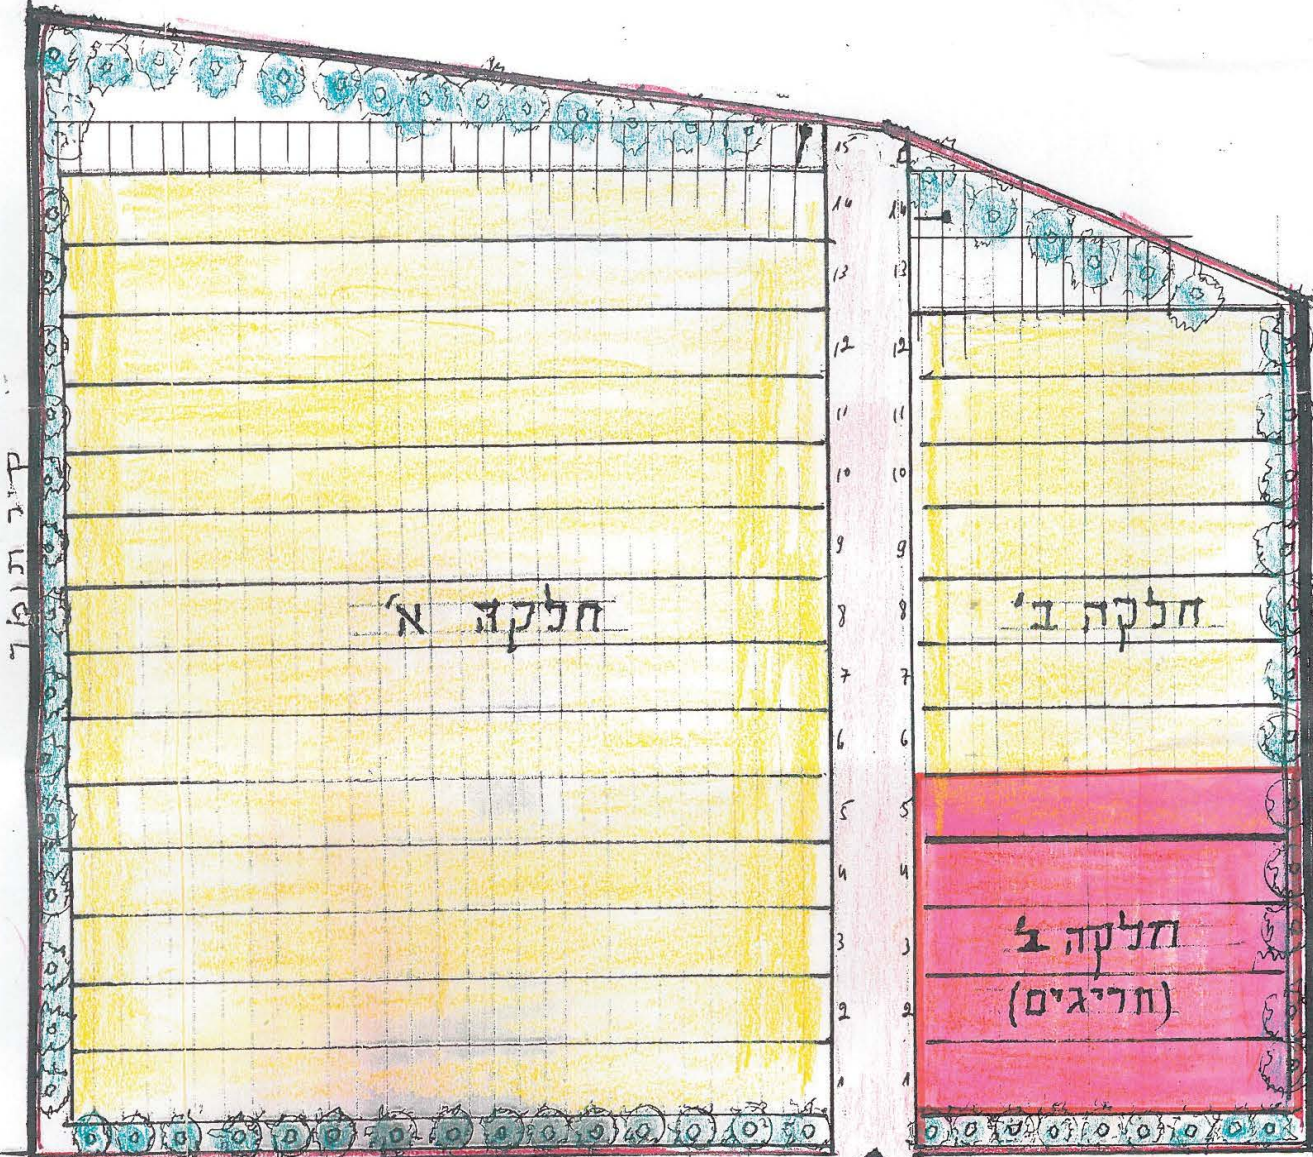 קיר תומך
חלקה א'
15
14
13
12
11
10
9
8
7
6
5
4
3
2
1
14
13
12
11
10
9
8
7
6
5
4
3
2
1
חלקה ב'
חלקה ב'
(חריגים)